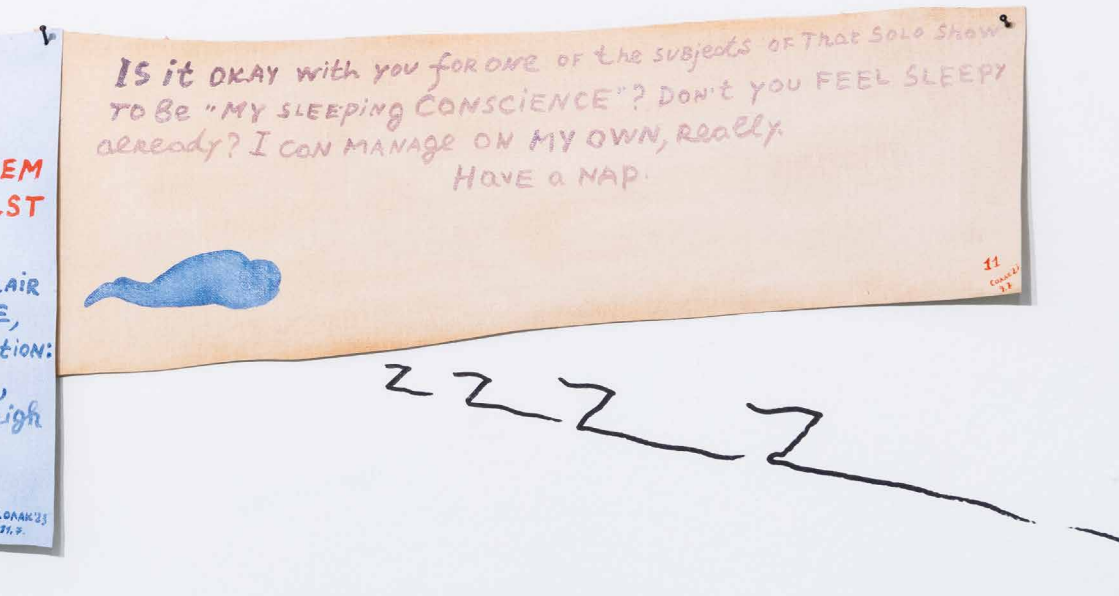 EM
ST
AiR
E,
tiON:
igh
IS it OKAY with you foR ONE OF the SUBJects OF That SOLO Show
TO Be "MY SLEEPiNG CONSCiENCE"? DON't you FEEL SLEEPY
aLReady? I CaN MANAGe ON MY OWN, ReaLLy.
HaVE a NAP.
11
z z z z